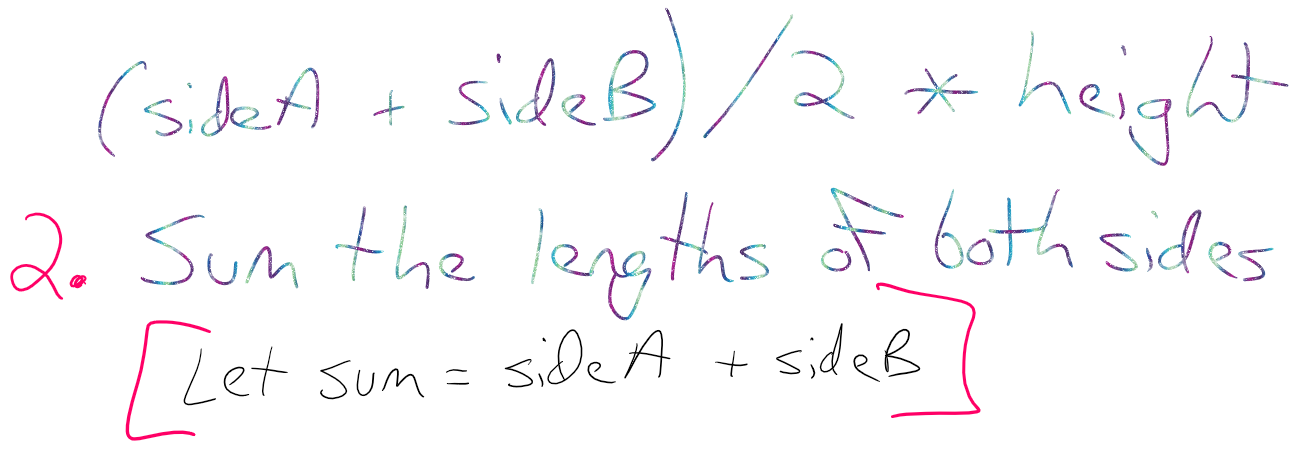 (sideA + sideB)/2 * height
2. Sum the lengths of both sides
[Let sum = sideA + sideB]